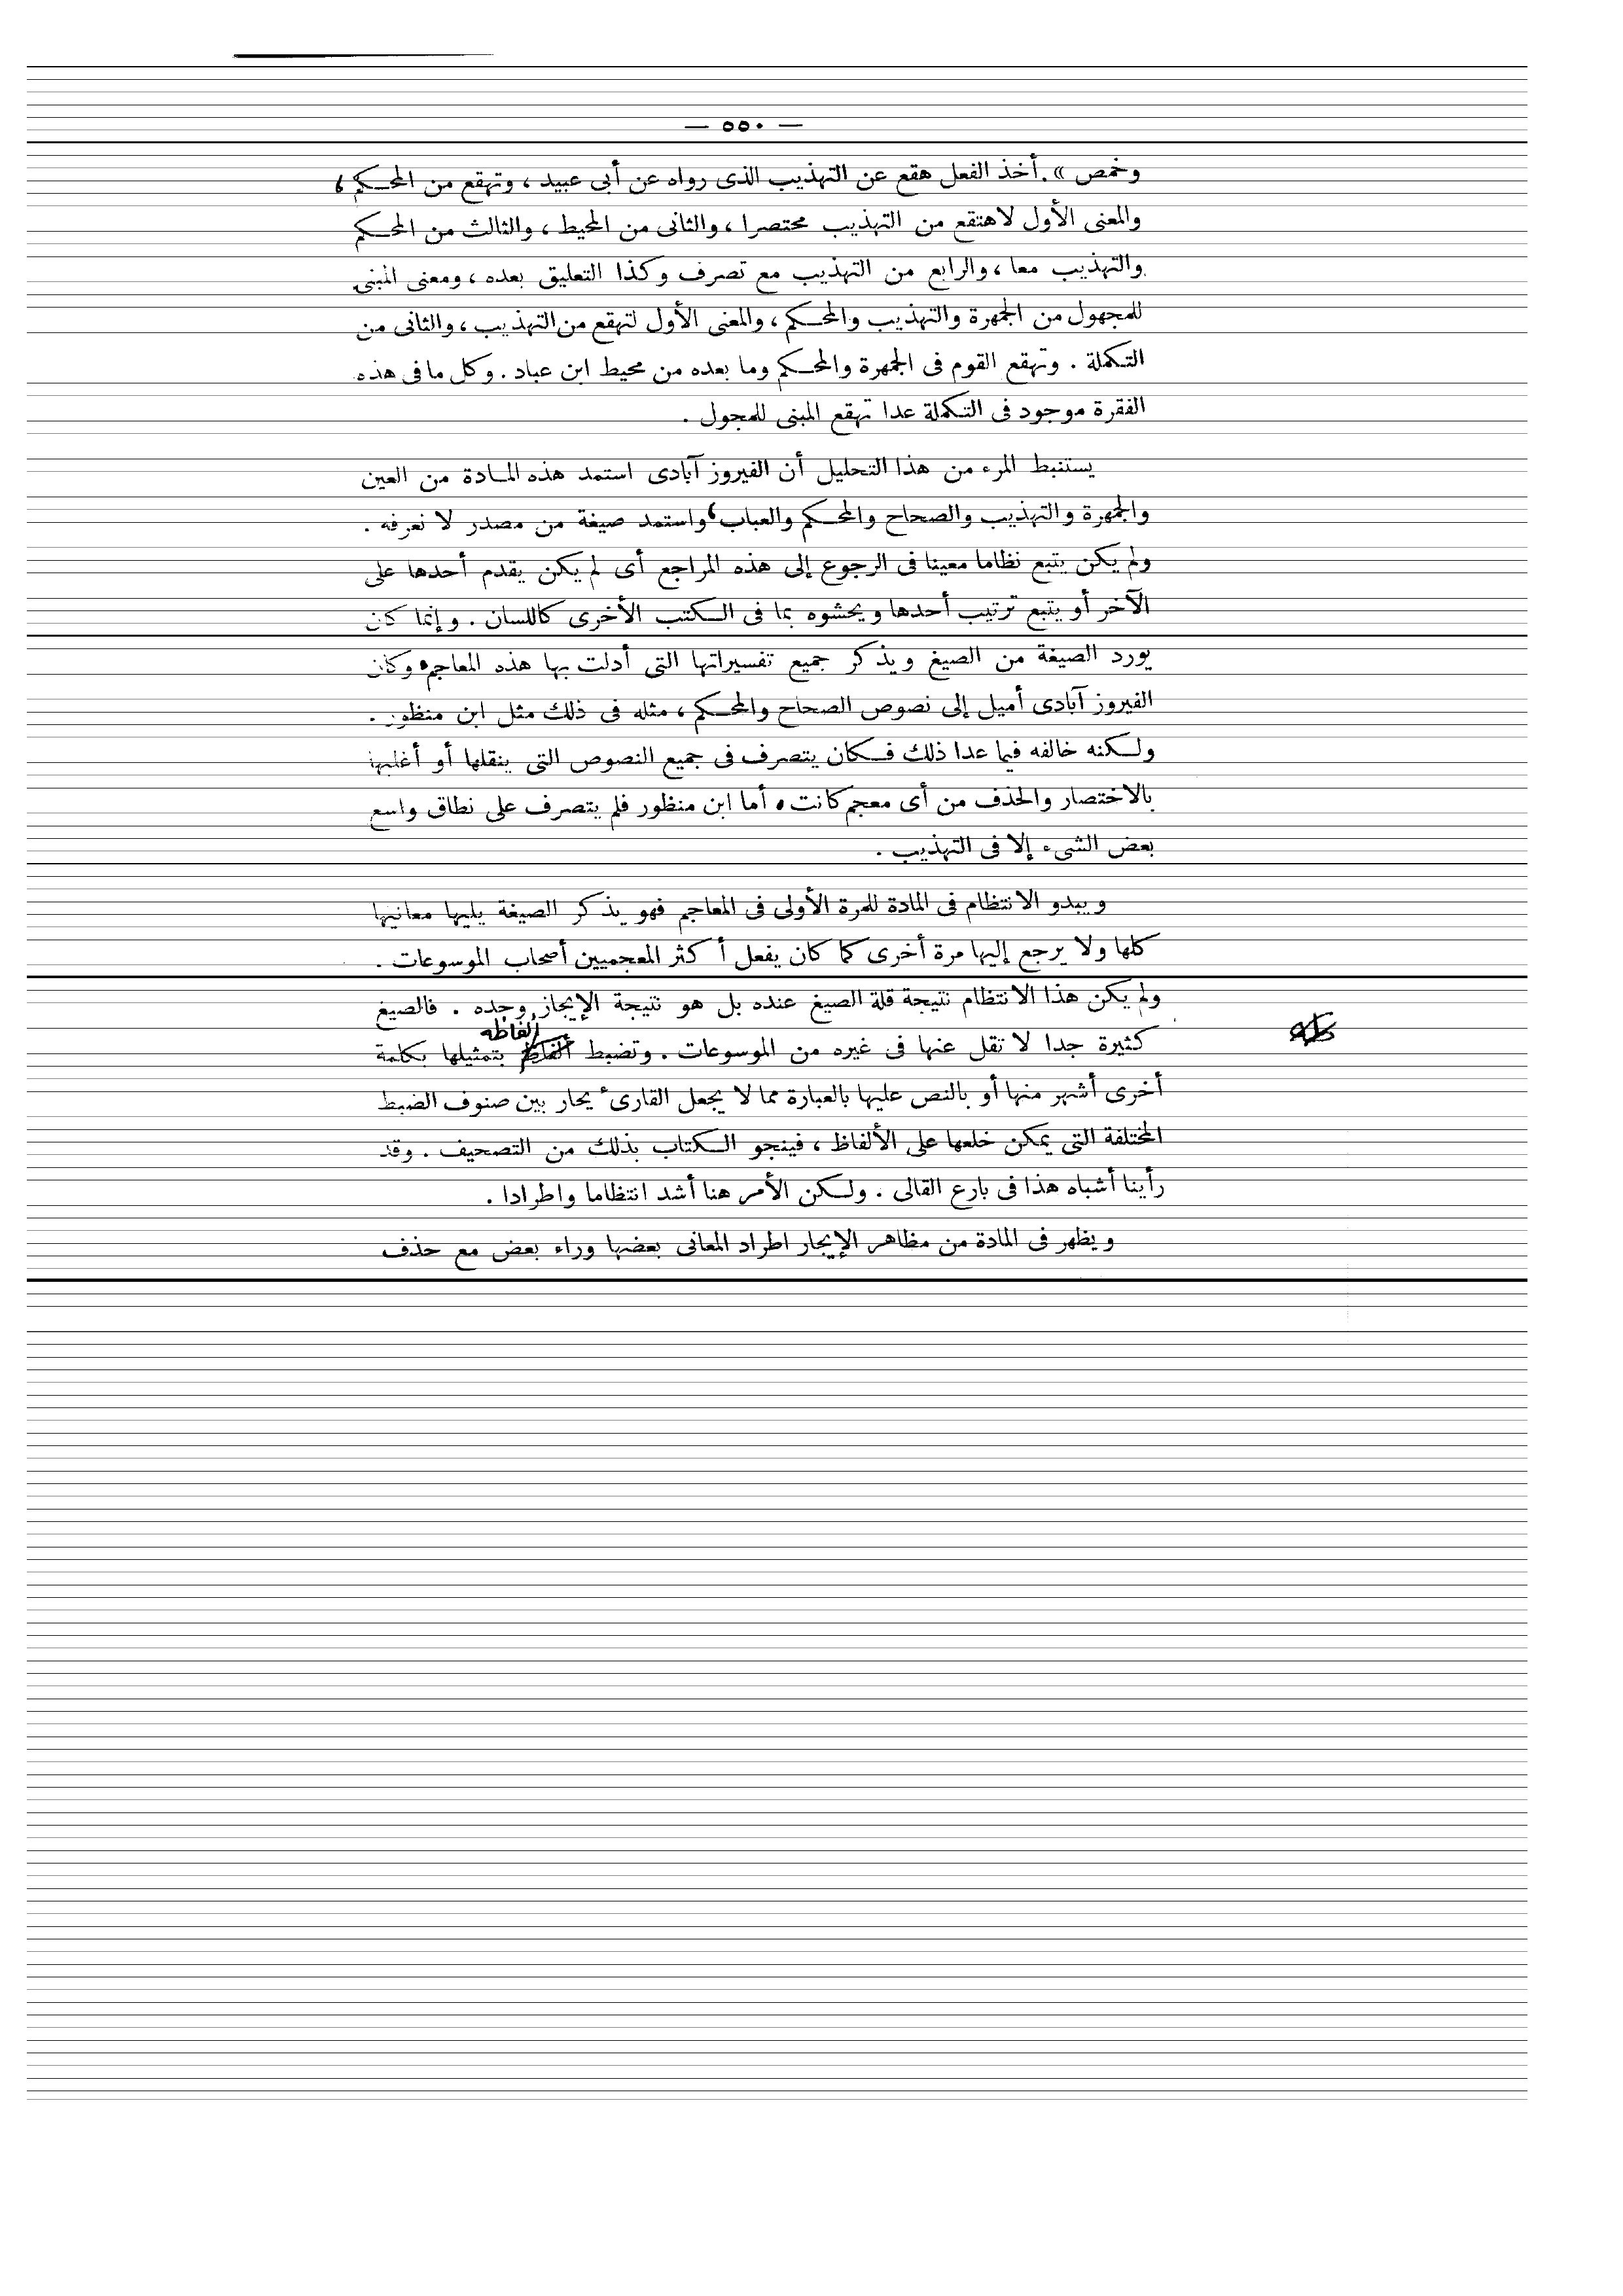 — ٥٥٠ —
وخمص » . أخذ الفعل هقع عن التهذيب الذى رواه عن أبى عبيد ، وتهقع من المحكم ،
والمعنى الأول لاهتقع من التهذيب مختصرا ، والثانى من المحيط ، والثالث من المحكم
والتهذيب معا ، والرابع من التهذيب مع تصرف وكذا التعليق بعده ، ومعنى المبنى
للمجهول من الجمهرة والتهذيب والمحكم ، والمعنى الأول لتهقع من التهذيب ، والثانى من
التكملة . وتهقع القوم فى الجمهرة والمحكم وما بعده من محيط ابن عباد . وكل ما فى هذه
الفقرة موجود فى التكملة عدا تهقع المبنى للمجول .
يستنبط المرء من هذا التحليل أن الفيروز آبادى استمد هذه المادة من العين
والجمهرة والتهذيب والصحاح والمحكم والعباب ، واستمد صيغة من مصدر لا نعرفه .
ولم يكن يتبع نظاما معينا فى الرجوع إلى هذه المراجع أى لم يكن يقدم أحدها على
الآخر أو يتبع ترتيب أحدها ويحشوه بما فى الكتب الأخرى كاللسان . وإنما كان
يورد الصيغة من الصيغ ويذكر جميع تفسيراتها التى أدلت بها هذه المعاجم . وكان
الفيروز آبادى أميل إلى نصوص الصحاح والمحكم ، مثله فى ذلك مثل ابن منظور .
ولكنه خالفه فيما عدا ذلك فكان يتصرف فى جميع النصوص التى ينقلها أو أغلبها
بالاختصار والحذف من أى معجم كانت . أما ابن منظور فلم يتصرف على نطاق واسع
بعض الشىء إلا فى التهذيب .
ويبدو الانتظام فى المادة للمرة الأولى فى المعاجم فهو يذكر الصيغة يليها معانيها
كلها ولا يرجع إليها مرة أخرى كما كان يفعل أكثر المعجميين أصحاب الموسوعات .
ولم يكن هذا الانتظام نتيجة قلة الصيغ عنده بل هو نتيجة الإيجاز وحده . فالصيغ
كثيرة جدا لا تقل عنها فى غيره من الموسوعات . وتضبط ألفاظه بتمثيلها بكلمة
أخرى أشهر منها أو بالنص عليها بالعبارة مما لا يجعل القارئ يحار بين صنوف الضبط
المختلفة التى يمكن خلعها على الألفاظ ، فينجو الكتاب بذلك من التصحيف . وقد
رأينا أشباه هذا فى بارع القالى . ولكن الأمر هنا أشد انتظاما واطرادا .
ويظهر فى المادة من مظاهر الإيجار اطراد المعانى بعضها وراء بعض مع حذف